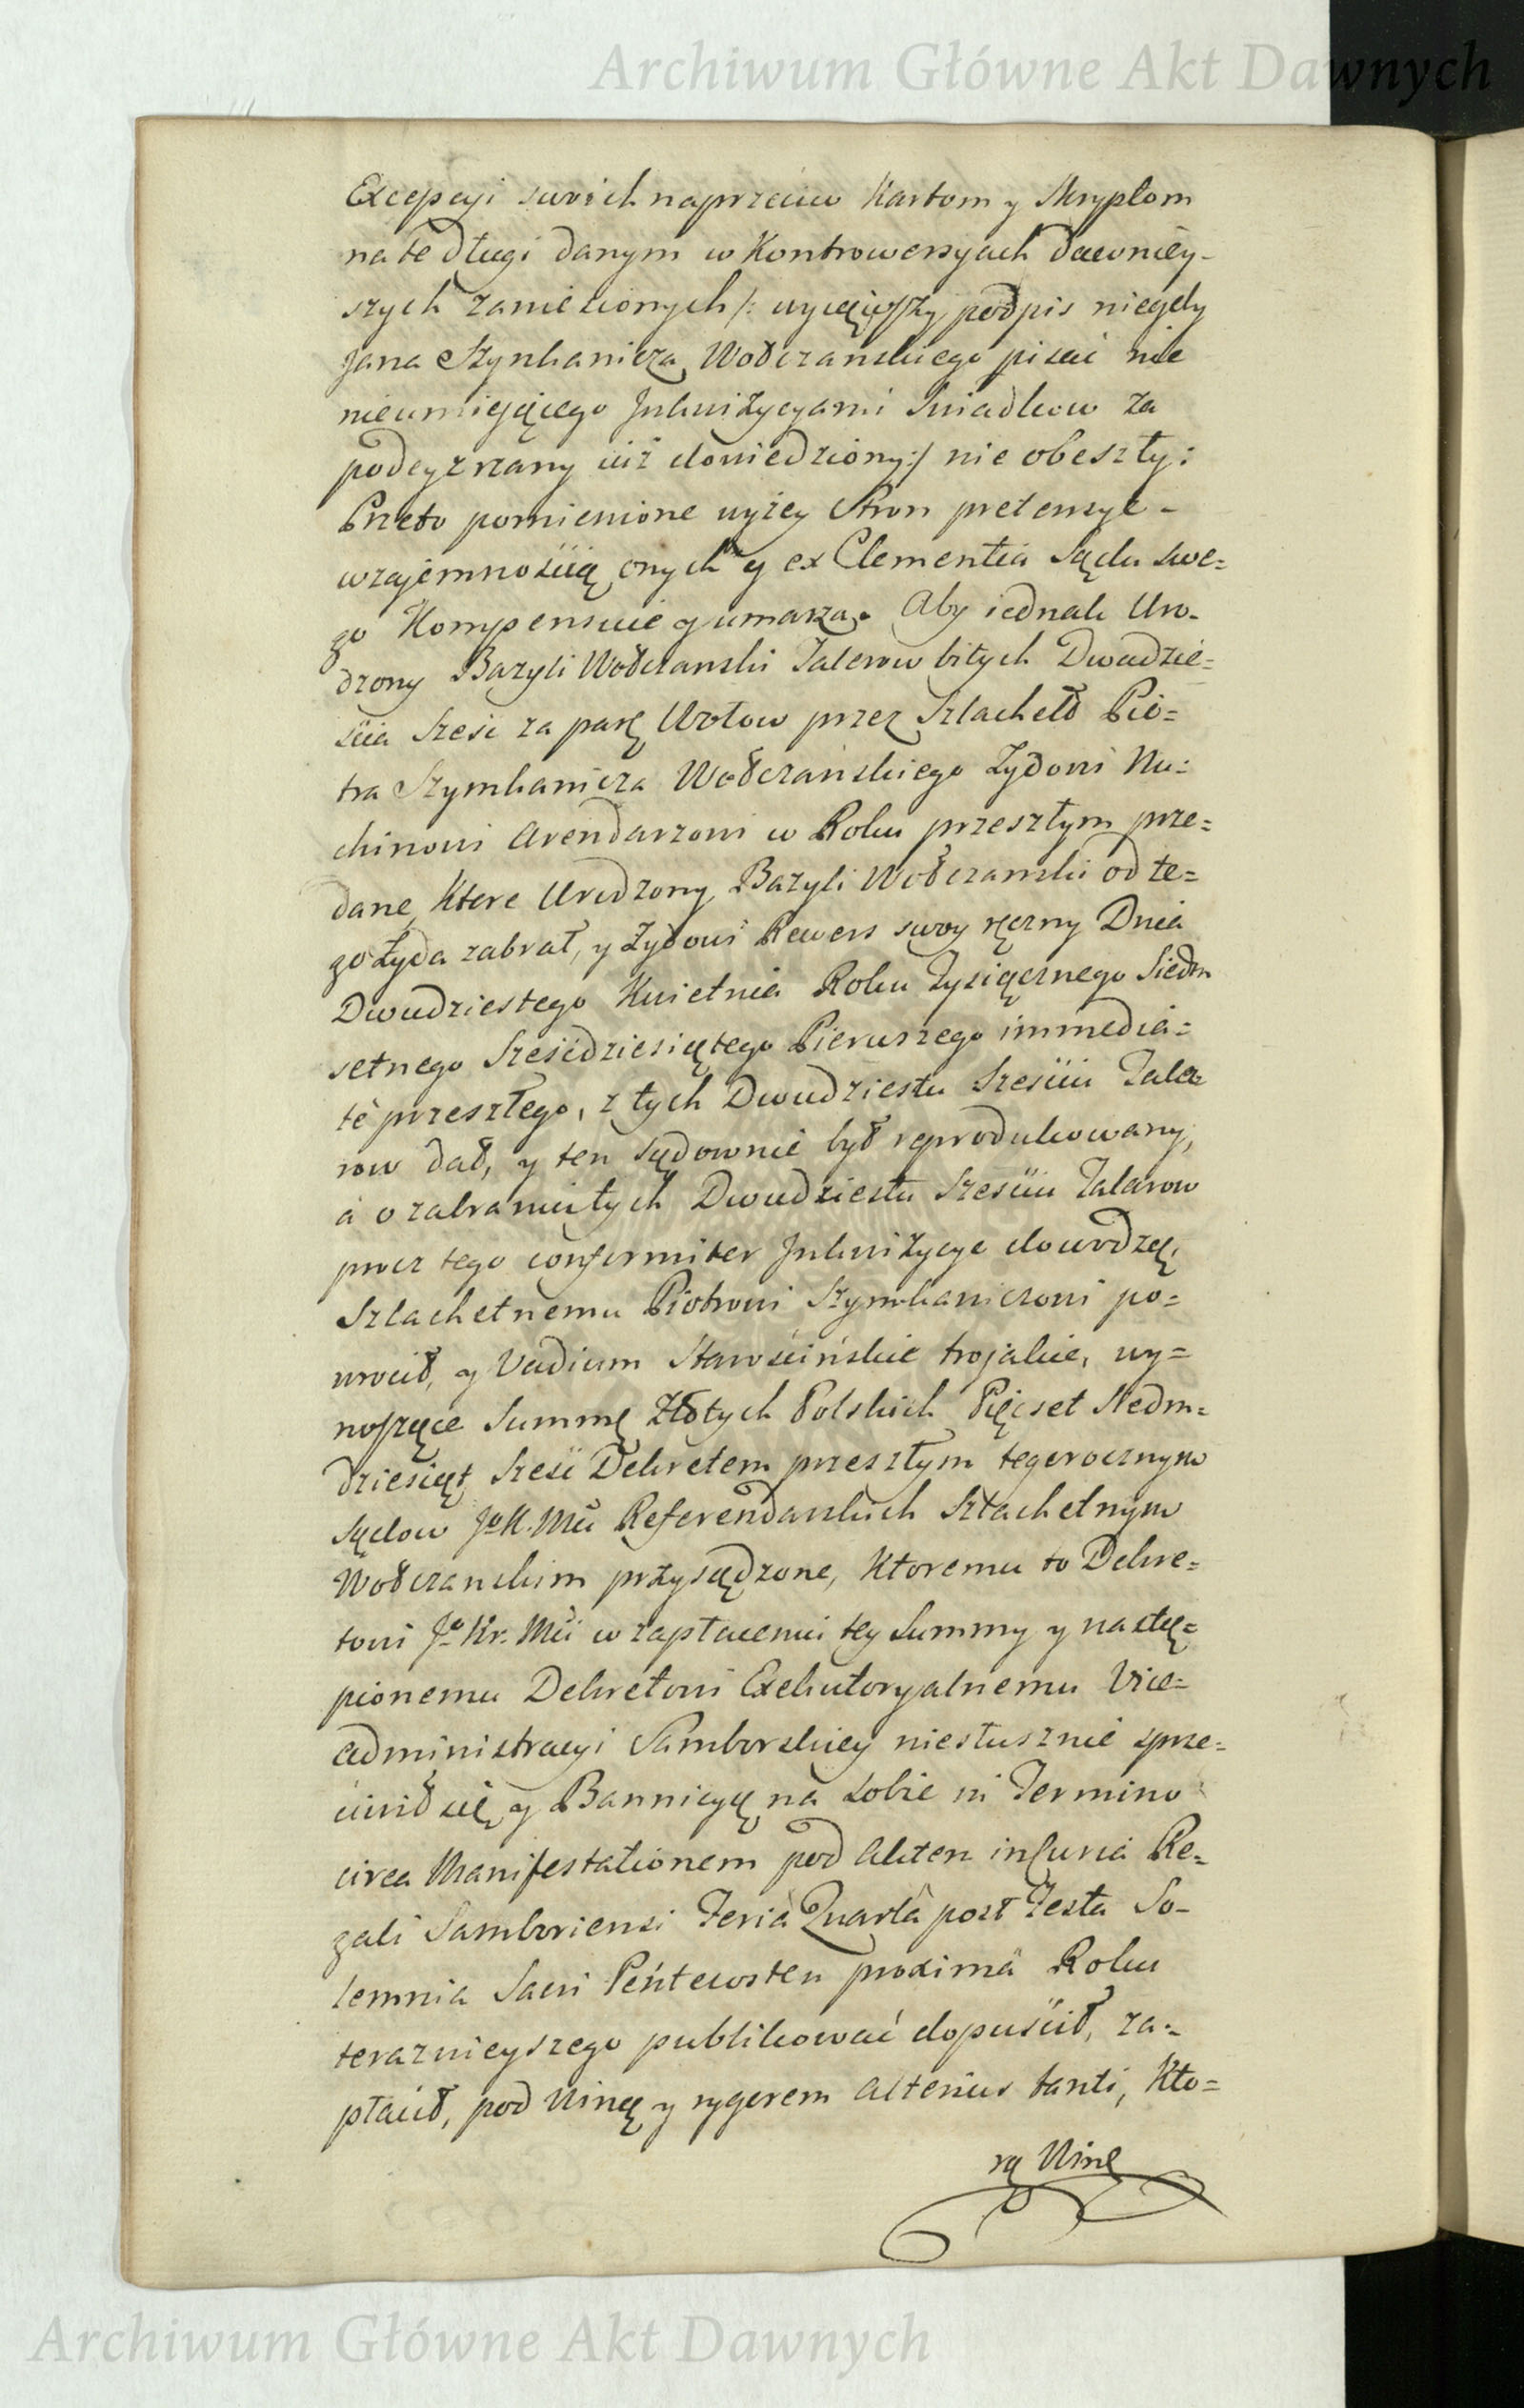 Archiwum Główne Akt Dawnych
Excepcyi swoich naprzeciw Kartom y Skryptom
na te długi danym w Kontrowersyach dawniey-
szych zaniesionych /: wyiąwszy podpis niegdy
Jana Szymkanicza Wołczanskiego pisać nie
nieumieiącego Inkwizycyami Swiadkow za
podeyzrzany iuż dowiedziony :/ nie obeszły:
Przeto pomienione wyżey Stron pretensye -
wzajemnością onych y ex Clementia Sądu swe=
go Kompensuie y umarza. Aby iednak Uro-
dzony Bazyli Wołczanski Talerow bitych Dwadzie=
ścia sześć za parę Wołow przez Szlachetð Pio=
tra Szymkanicza Wołczańskiego Zydowi Nu=
chinowi Arendarzowi w Roku przeszłym prze=
dane, Ktore Urodzony Bazyli Wołczanski od te=
go Żyda zabrał, y Żydowi Rewers swoy ręczny Dnia
Dwudziestego Kwietnia Roku Tysiącznego Siedm
setnego Sześćdziesiątego Pierwszego immedia=
tè przeszłego, z tych Dwudziestu Sześciu Tala
row dał, y ten sądownie był reprodukowany,
a o zabraniu tych Dwudziestu Sześciu Talarow
procz tego conformiter Inkwizycye dowodzą,
Szlachetnemu Piotrowi Szymkaniczowi po=
wrocił, y Vadium Starościńskie trojakie, wy=
noszące Summę Złotych Polskich Pięcset Siedm=
dziesiąt Sześć Dekretem przeszłym tegorocznym
Sądow Jo K. Mci Referendarskich Szlachetnym
Wołczanskim przysądzone, Ktoremu to Dekre=
towi Jo Kr. Mci w zapłaceniu tey Summy y nastę=
pionemu Dekretowi Exekutoryalnemu Vice=
administracyi Samborskiey niesłusznie sprze=
ciwił się y Bannicyą na sobie in Termino
circa Manifestationem pod Aktem in Curia Re=
gali Samboriensi Feria Quarta post Festa So-
lemnia Sacri Pentecosten proxima Roku
teraznieyszego publikować dopuścił, za=
płacił, pod Winą y rygorem alterius tanti, Kto=
rą Winę
Archiwum Główne Akt Dawnych